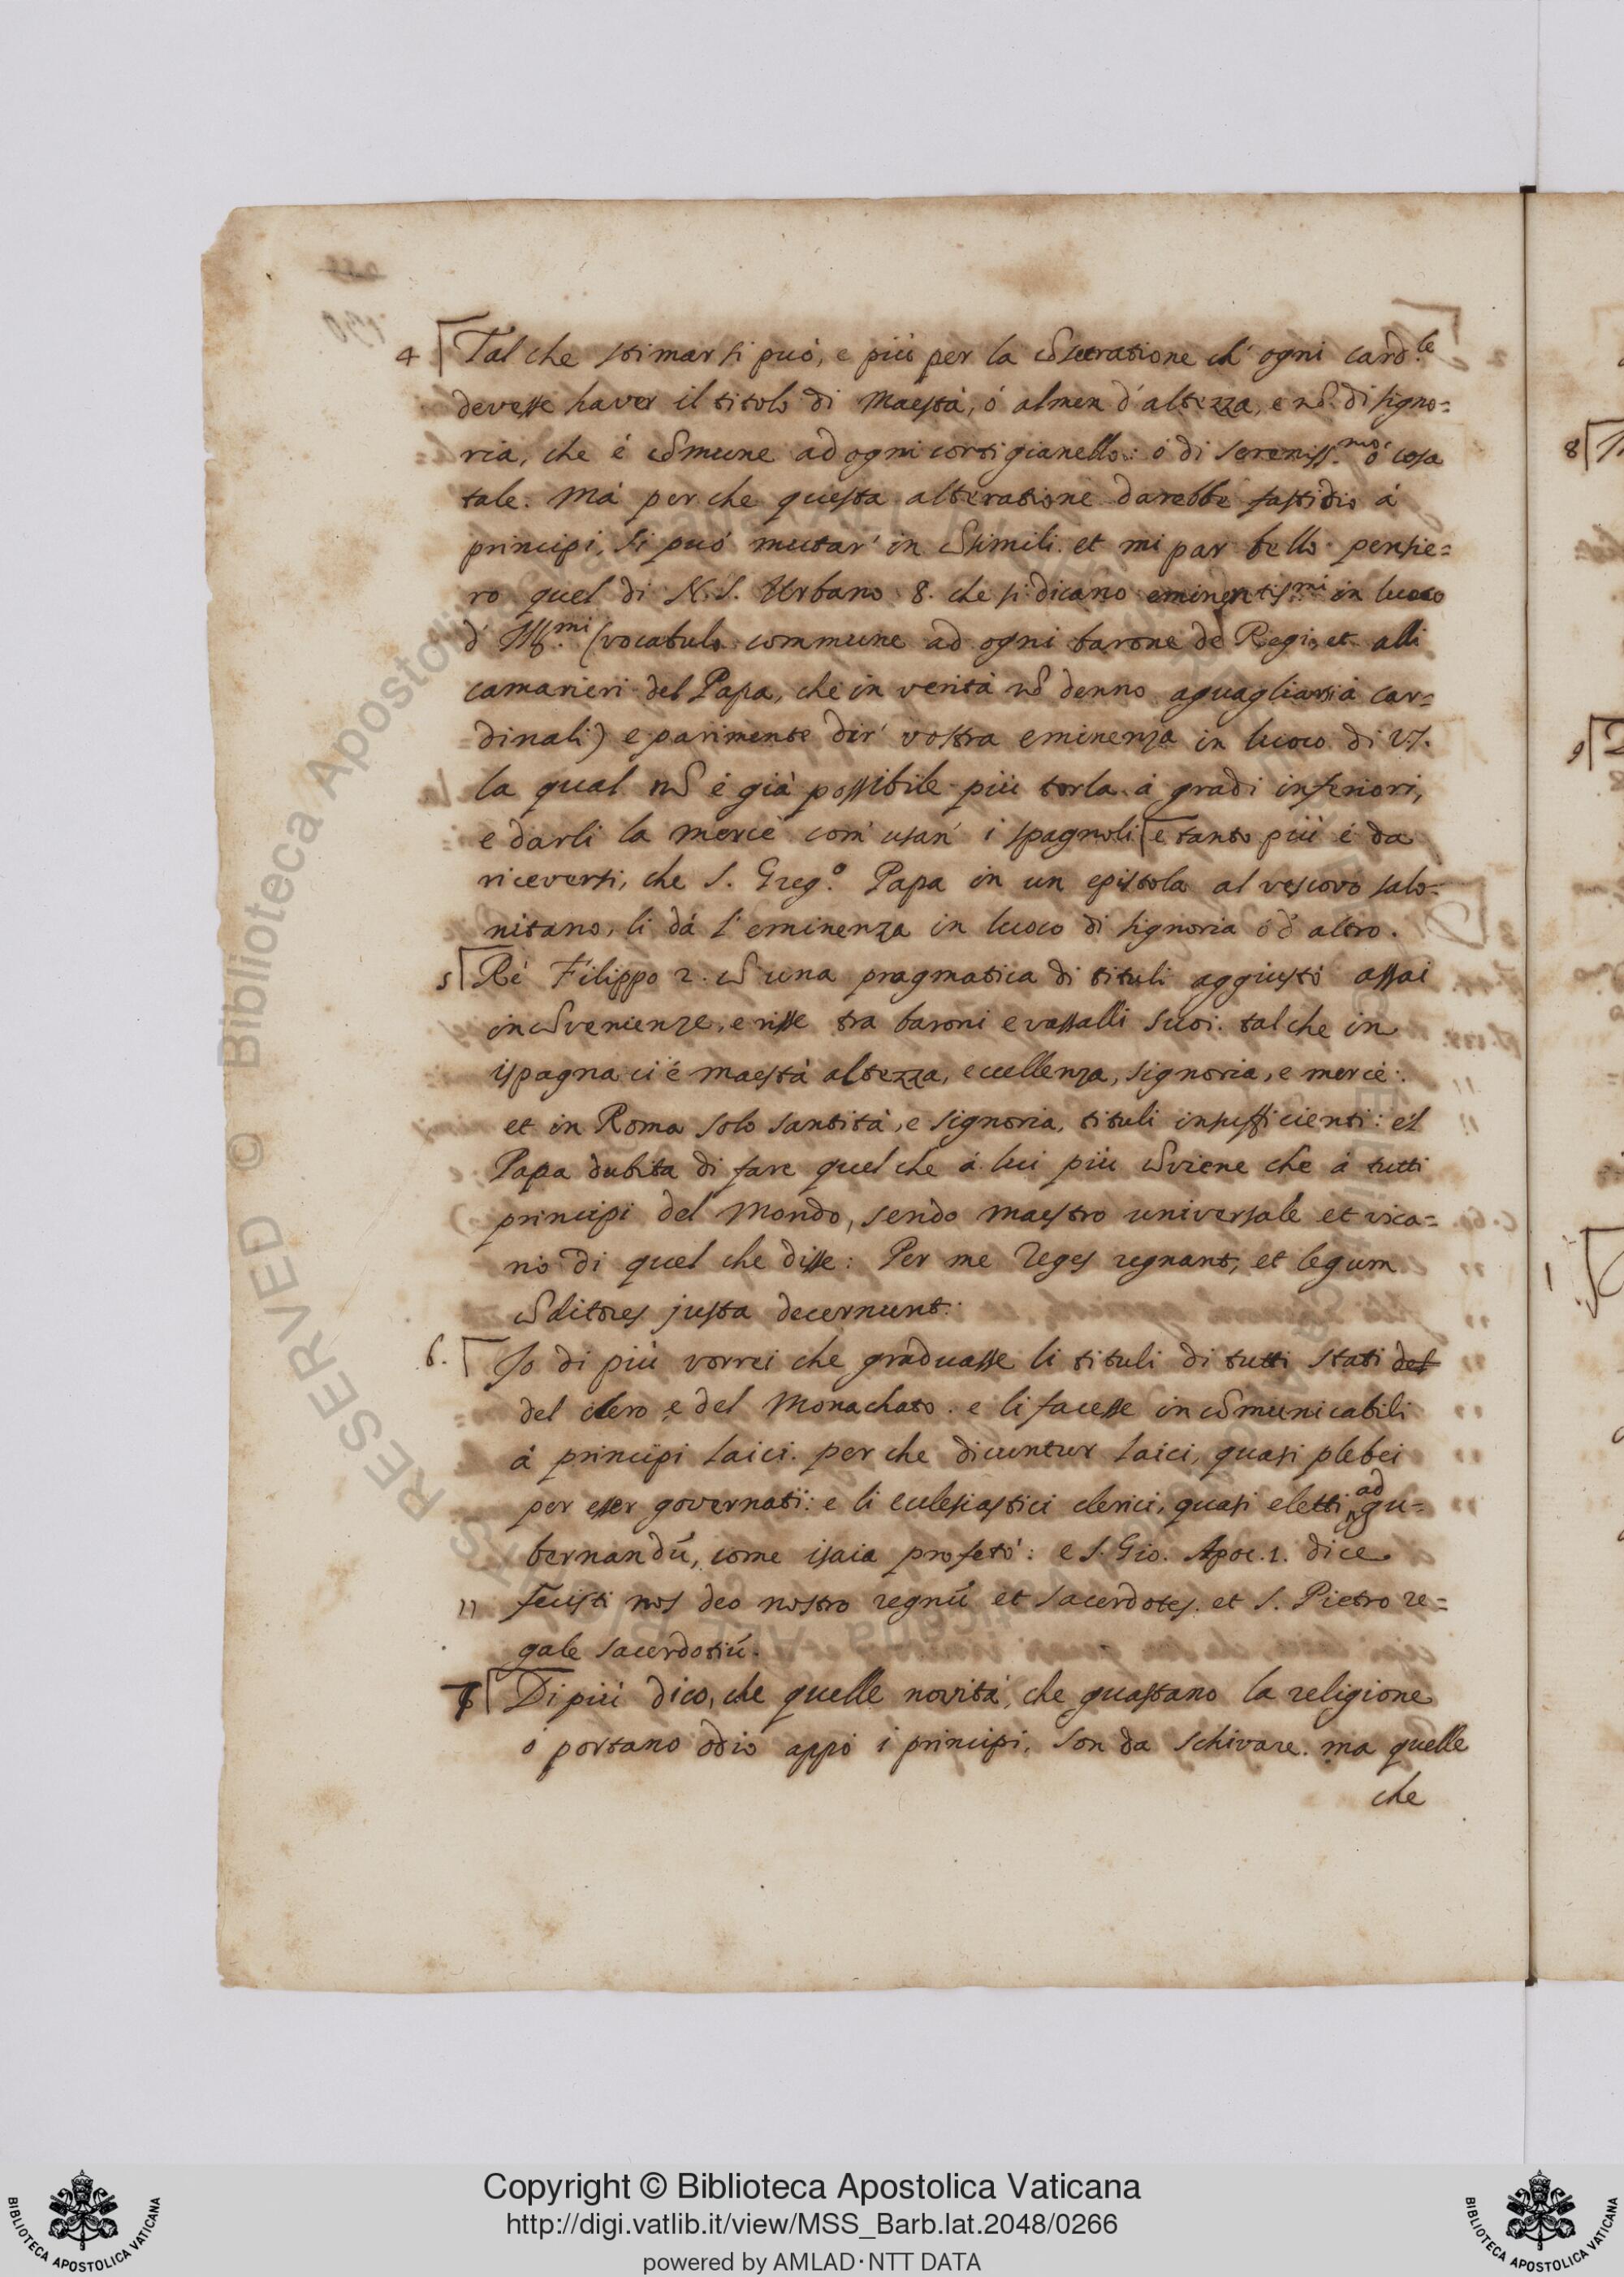 4 Tal che stimar si può, e più per la cōsecratione ch' ogni card.le
devesse haver il titolo di Maestà, ó almen d'altezza, e nō di signo=
ria, che é cōmune ad ogni cortigianello: ó di sereniss.mo ó cosa
tale. Má perche questa alteratione darebbe fastidio á
principi, si puó mutar' in cōsimili. et mi par bello pensie=
ro quel di N.S. Urbano 8. che si dicano eminentis.mi in luoco
d' Ill.mi (vocabulo commune ad ogni barone de Regi, et alli
camarieri del Papa, che in verità nō denno aguagliarsi á car=
dinali) e parimente dir' vostra eminenza in luoco di V.S.
la qual nō é già possibile più torla á gradi inferiori,
e darli la mercè com' usan' i spagnoli e tanto più é da
riceversi, che S. Greg.o Papa in un epistola al vescovo salo=
nitano, li dà l'eminenza in luoco di signoria ó d'altro.
5 Ré Filippo 2. cō una pragmatica di tituli aggiustó assai
incōvenienze, e risse tra baroni e vassalli suoi. tal che in
ispagna ci é maestà altezza, eccellenza, signoria, e mercè:
et in Roma solo santità, e signoria, tituli insufficienti: e'l
Papa dubita di fare quel che á lui più cōviene che á tutti
principi del Mondo, sendo maestro universale et vica=
rio di quel che disse: Per me reges regnant, et legum
cōditores justa decernunt.
6. Jo di più vorrei che graduasse li tituli di tutti stati del
del clero e del Monachato. e li facesse incōmunicabili
á principi laici. perche dicuntur laici, quasi plebei
per esser governati: e li eclesiastici clerici, quasi eletti ad gu=
bernandū, come isaia profetó: e S. Gio. Apoc. 1. dice
" fecisti nos deo nostro regnū et sacerdotes. et S. Pietro re=
gale sacerdotiū.
7 Di più dico, che quelle novità, che guastano la religione
ó portano odio appó i principi, son da schivare. ma quelle
che
8
9
1
RESERVED © Biblioteca Apostolica Vaticana
Copyright © Biblioteca Apostolica Vaticana
http://digi.vatlib.it/view/MSS_Barb.lat.2048/0266
powered by AMLAD·NTT DATA
BIBLIOTECA APOSTOLICA VATICANA
BIBLIOTECA APOSTOLICA VATICANA